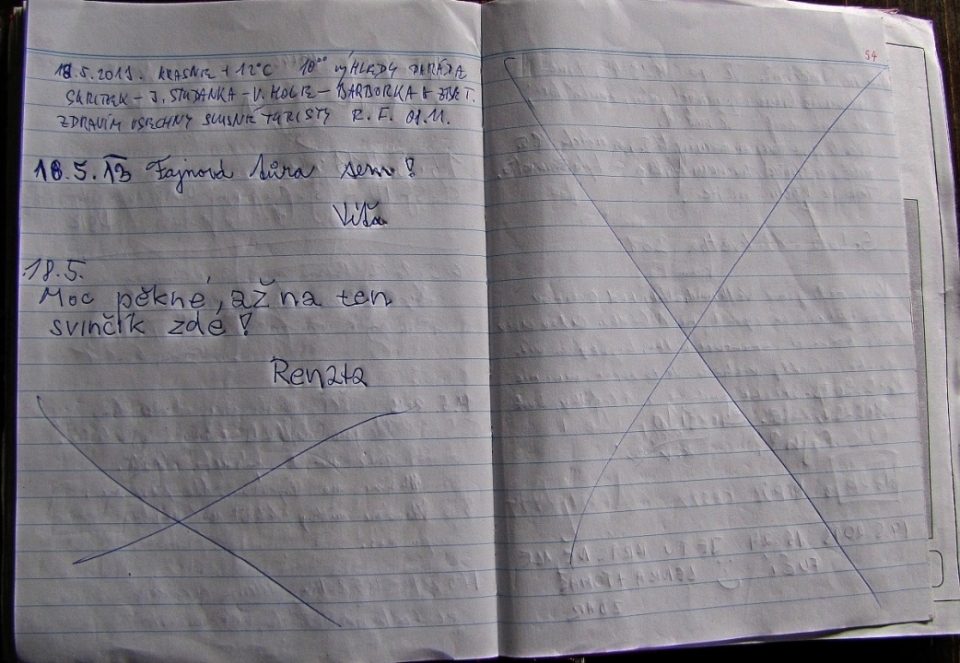 18.5.2013. KRÁSNIE +12°C 10°° VÝHLEDY PARÁDA
SKRITEK - J. STUDANKA - V. HOLE - BARBORKA A ZPĚT.
ZDRAVÍM VŠECHNY SLUŠNÉ TURISTY R. F.
18.5.13 Fajnová túra sem!
Víťa
18.5.
Moc pěkné, až na ten
svinčík zde!
Renata
54